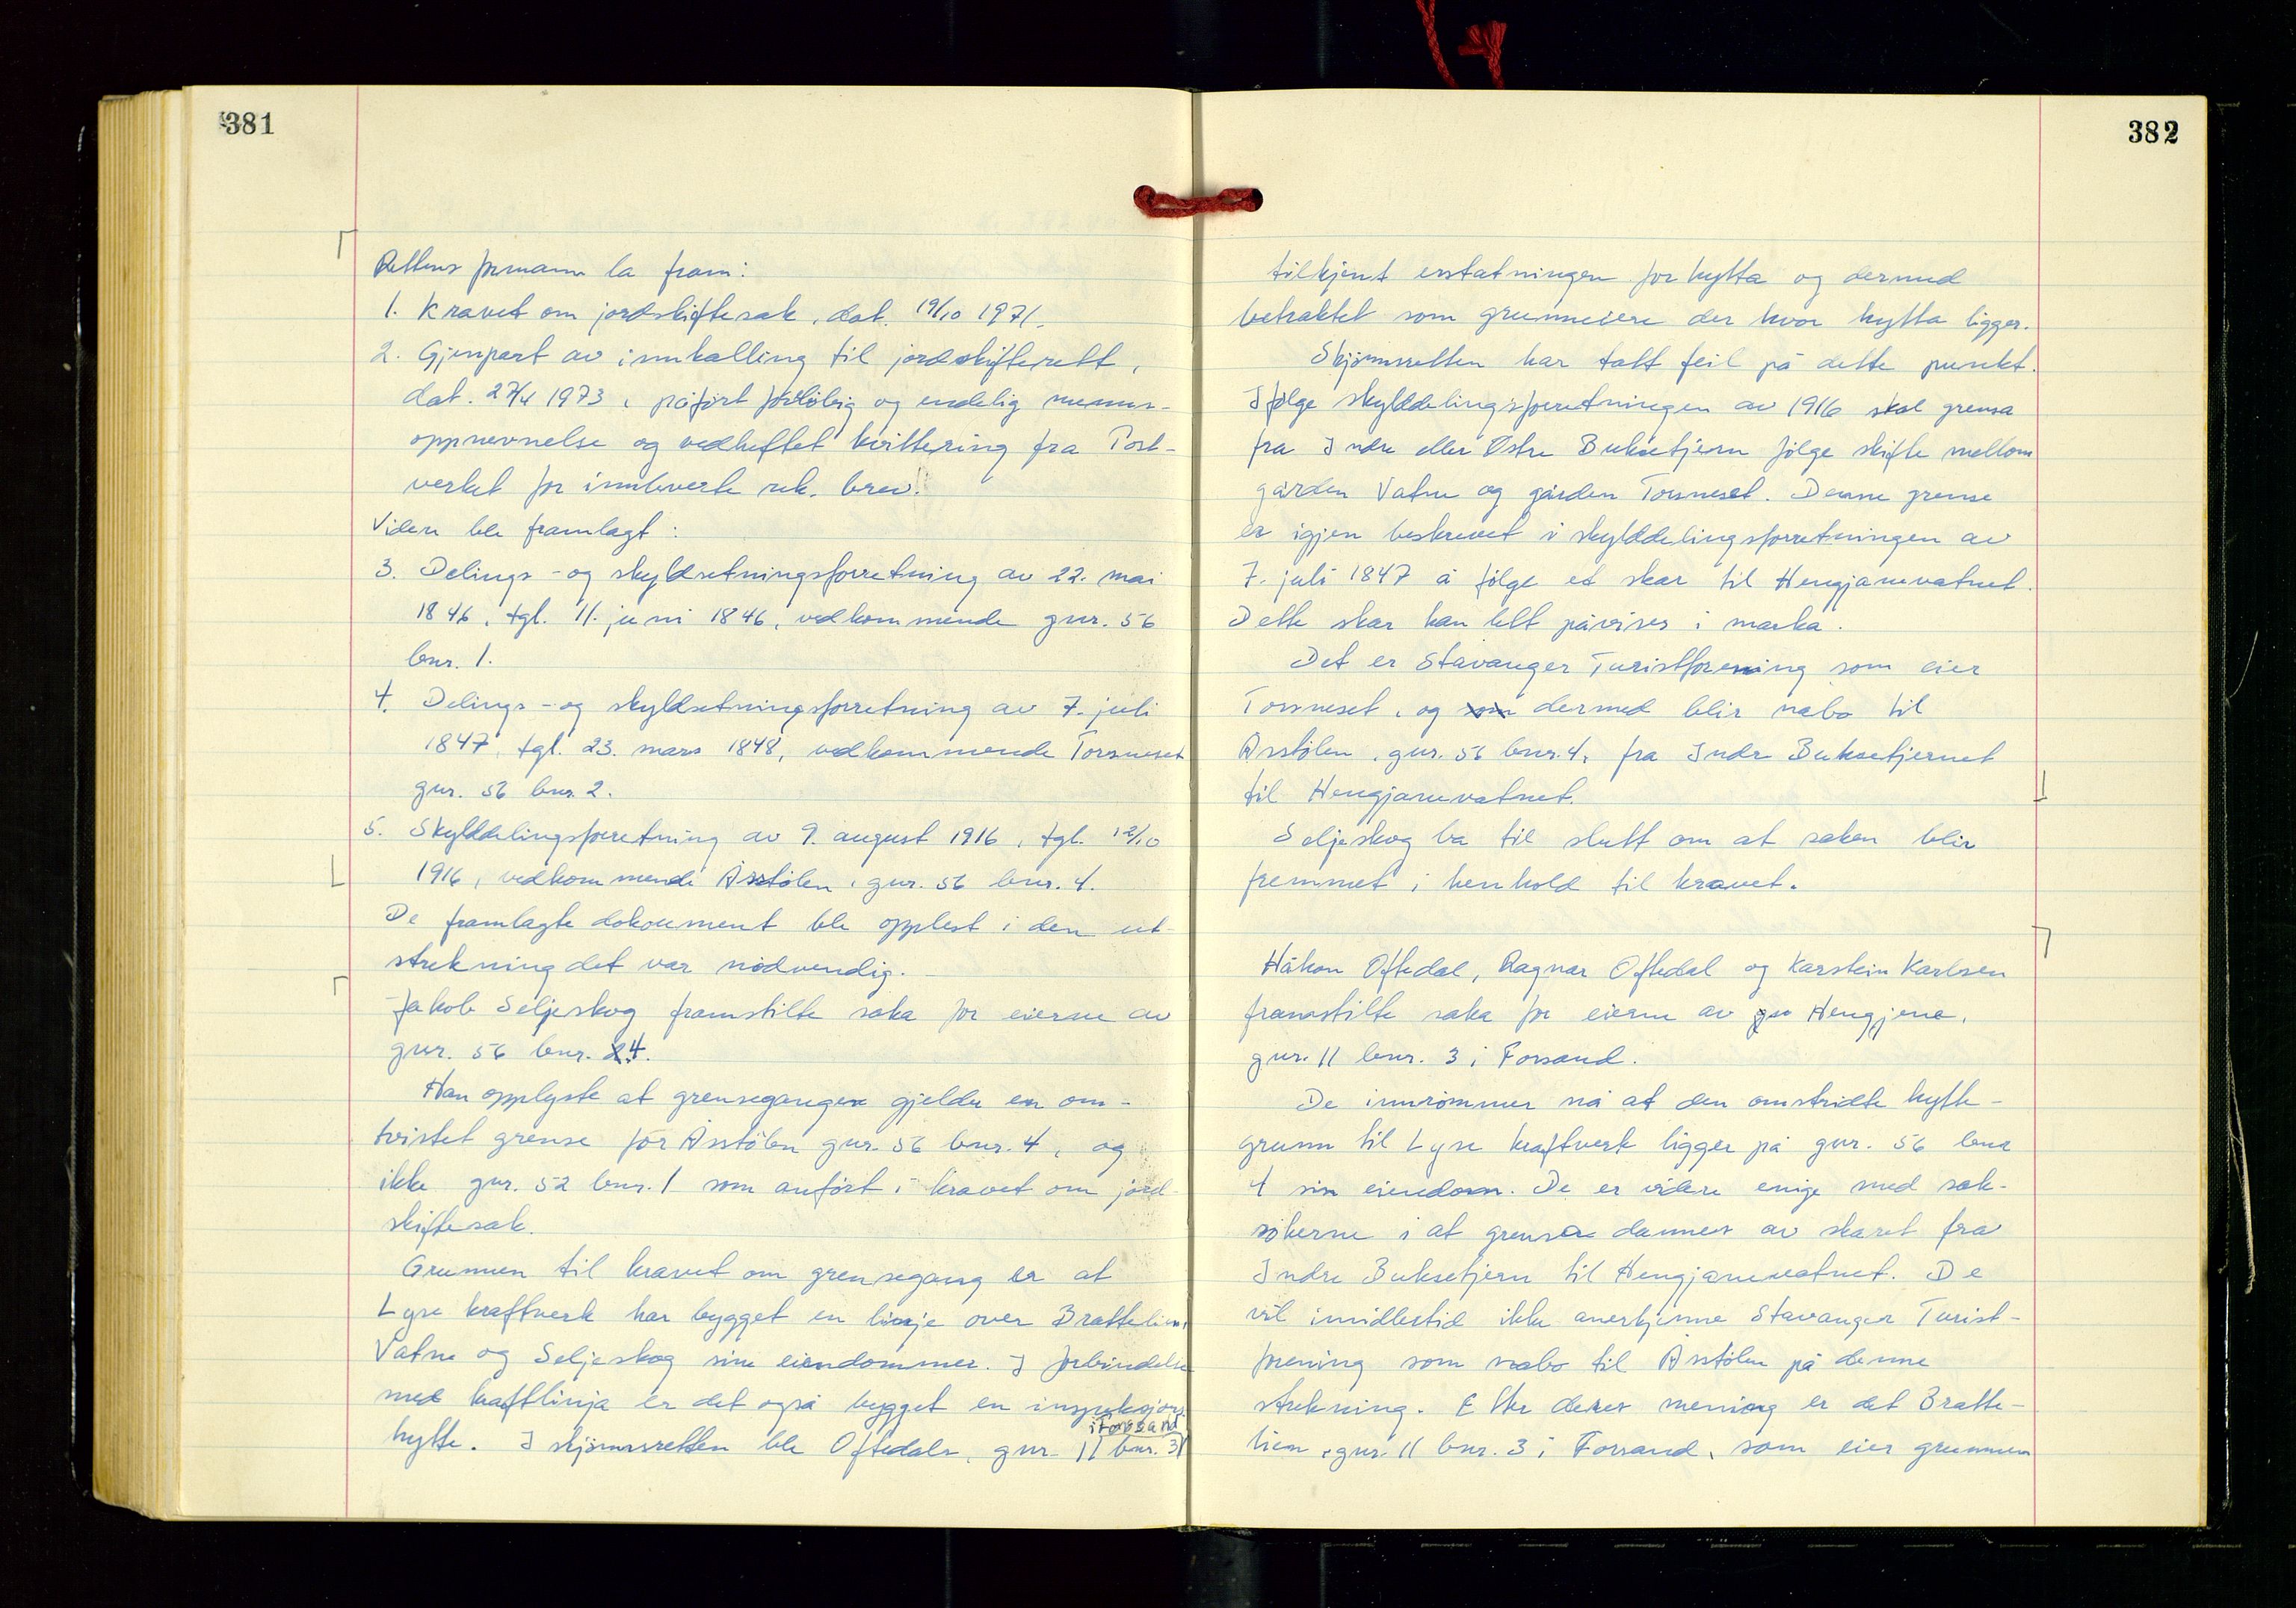 381
Rettens formann la fram:
1. Kravet om jordskiftesak, dat. 19/10 1971.
2. Gjenpart av innkalling til jordskifterett,
dat. 27/4 1973, påført førløbig og endelig menns-
oppnevnelse og vedheftet kvittering fra Post-
verket for innleverte rek. brev.
Videre ble framlagt:
3. Delings- og skyldsetningsforretning av 22. mai
1846, tgl. 11. juni 1846, vedkommende gnr. 56
bnr. 1.
4. Delings- og skyldsetningsforretning av 7. juli
1847, tgl. 23. mars 1848, vedkommende Torsneset
gnr. 56 bnr. 2.
5. Skylddelingsforretning av 9. august 1916, tgl. 12/10
1916, vedkommende Åsstølen, gnr. 56 bnr. 4.
De framlagte dokument ble opplest i den ut-
strekning det var nødvendig.
Jakob Seljeskog framstilte saka for eierne av
gnr. 56 bnr. 4.
Han opplyste at grensegangen gjelder en om-
tvistet grense for Åsstølen gnr. 56 bnr. 4, og
ikke gnr. 52 bnr. 1 som anført i kravet om jord-
skiftesak.
Grunnen til kravet om grensegang er at
Lyse kraftverk har bygget en linje over Brattelien,
Vatne og Seljeskog sine eiendommer. I forbindelse
med kraftlinja er det også bygget en inspeksjons-
i Forsand
hytte. I skjønnsretten ble Oftedals, gnr. 11 bnr. 3
382
tilkjent erstatningen for hytta og dermed
betraktet som grunneiere der hvor hytta ligger.
Skjønnsretten har tatt feil på dette punkt.
Ifølge skylddelingsforretningen av 1916 skal grensa
fra Indre eller Østre Buksetjern følge skifte mellom
gården Vatne og gården Torsneset. Denne grense
er igjen beskrevet i skylddelingsforretningen av
7. juli 1847 å følge et skar til Hengjanevatnet.
Dette skar kan lett påvises i marka.
Det er Stavanger Turistforening som eier
Torsneset, og som dermed blir nabo til
Åsstølen, gnr. 56 bnr. 4, fra Indre Buksetjernet
til Hengjanevatnet.
Seljeskog ba til slutt om at saken blir
fremmet i henhold til kravet.
Håkon Oftedal, Ragnar Oftedal og Karstein Karlsen
framstilte saka for eierne av Hengjane,
gnr. 11 bnr. 3 i Forsand.
De innrømmer nå at den omstridte hytte-
grunn til Lyse kraftverk ligger på gnr. 56 bnr
4 sin eiendom. De er videre enige med sak-
søkerne i at grensa dannes av skaret fra
Indre Buksetjern til Hengjanevatnet. De
vil imidlertid ikke anerkjenne Stavanger Turist-
forening som nabo til Åsstølen på denne
strekning. Etter deres mening er det Bratte-
lien, gnr. 11 bnr. 3 i Forsand, som eier grunnen